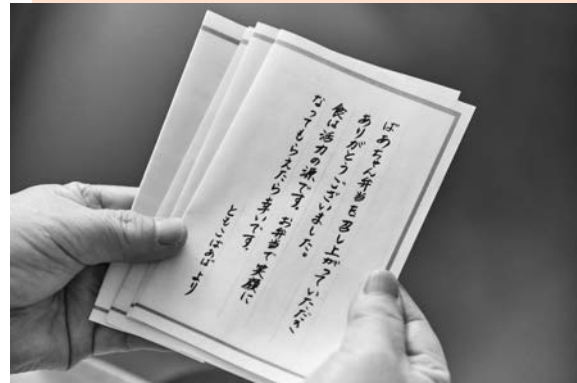 ばあちゃん弁当を召し上がっていただき
ありがとうございました。
食は活力の源です。お弁当で笑顔に
なってもらえたら幸いです。
ともこばあばより